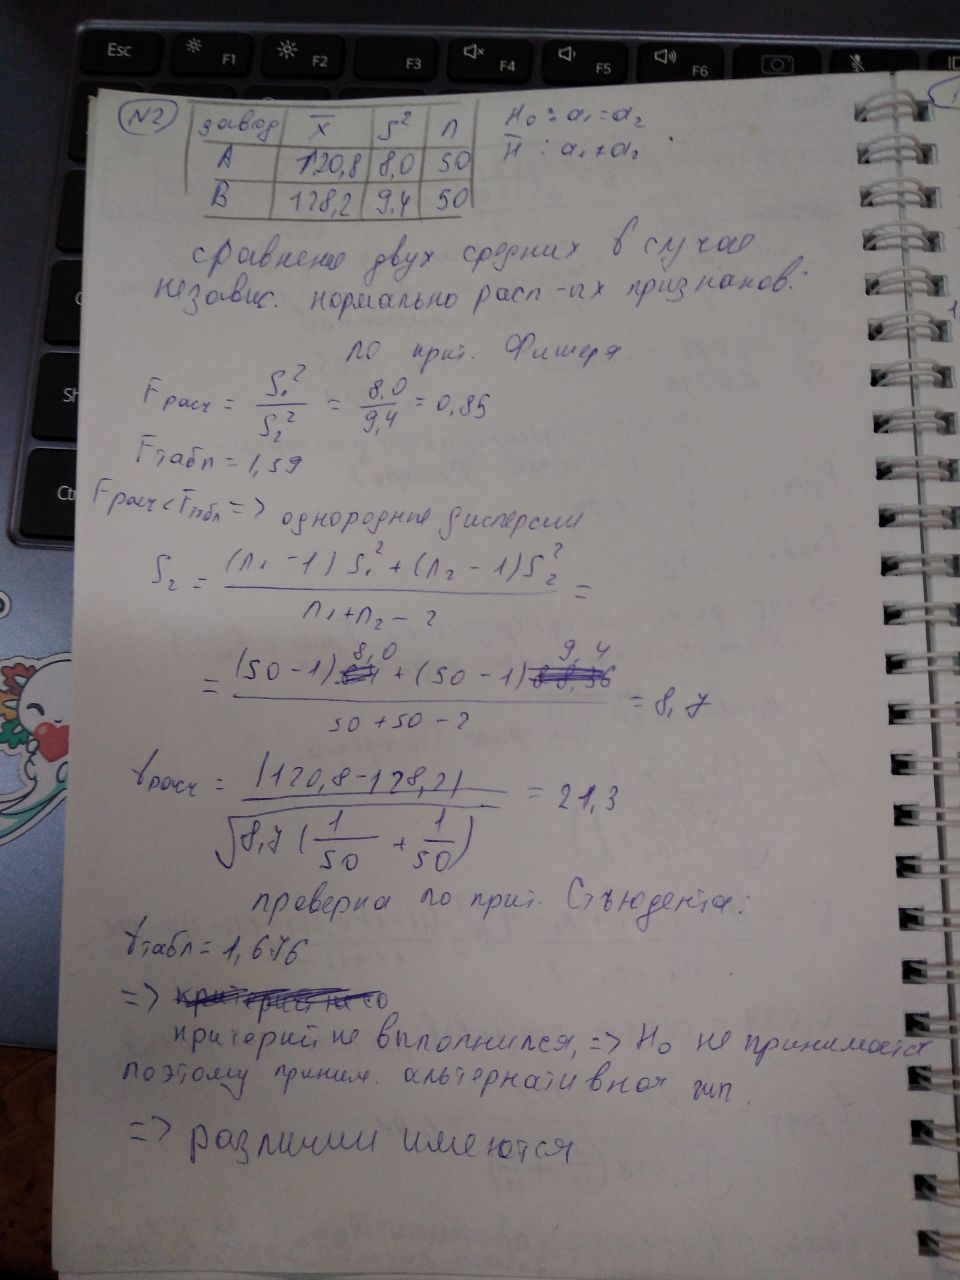 Esc F1 F2 F3 F4 F5 F6
N2
завод x̄ S² n
A 120,8 8,0 50
B 128,2 9,4 50
H₀ : a₁ = a₂
H̄ : a₁ ≠ a₂
сравнение двух средних в случае
независ. нормально расп-ых признаков:
по крит. Фишера
Fрасч = S₁²/S₂² = 8,0/9,4 = 0,85
Fтабл = 1,59
Fрасч < Fтабл => однородные дисперсии
S₂ = ((n₁ - 1) S₁² + (n₂ - 1) S₂²)/(n₁ + n₂ - 2) =
= ((50 - 1) 8,0 + (50 - 1) 9,4)/(50 + 50 - 2) = 8,7
tрасч = |120,8 - 128,2|/√(8,7 (1/50 + 1/50)) = 21,3
проверка по крит. Стъюдента:
tтабл = 1,676
=>
критерий не выполнился, => H₀ не принимается
поэтому приним. альтернативная гип.
=> различии имеются